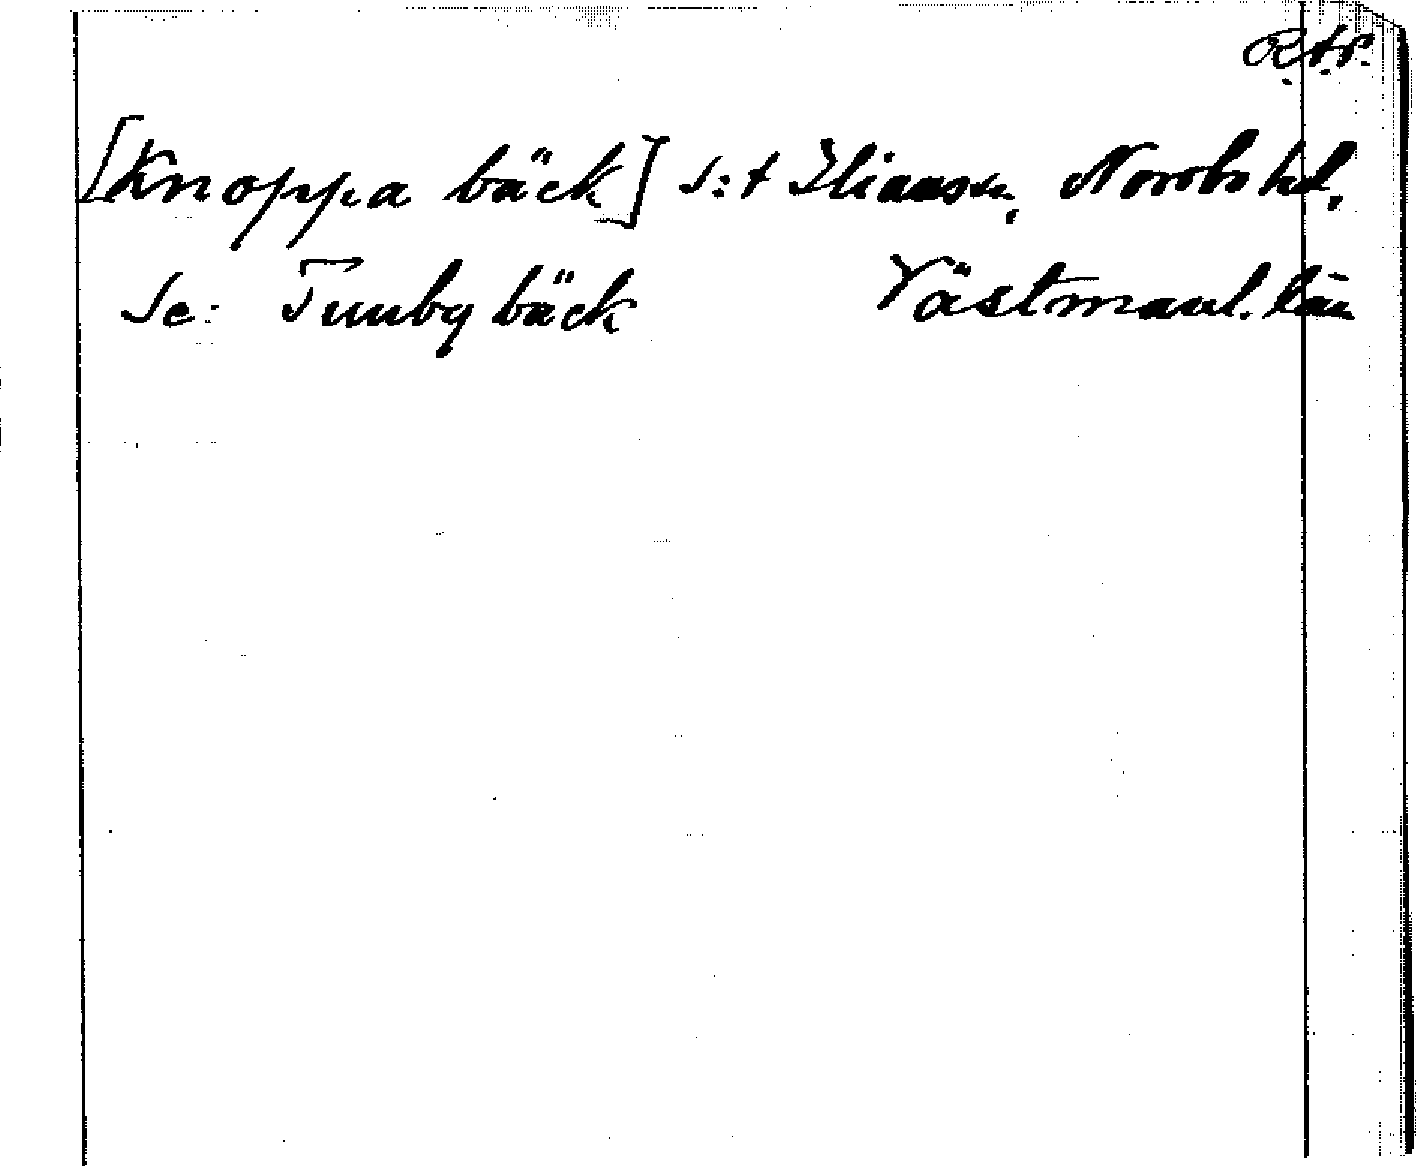 R.t.r.
[Knoppa bäck] S:t Iliansn, Norrbo hd.
Se: Tunby bäck Västmanl. län